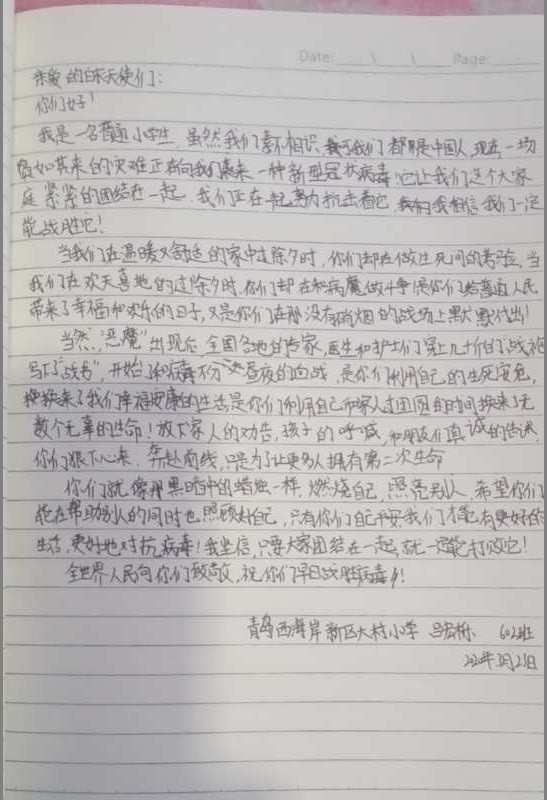 Date: \ \ Page:
亲爱的白衣天使们:
你们好!
我是一名普通小学生,虽然我们素不相识,可我们都是中国人,现在一场
突如其来的灾难正在向我们袭来一种新型冠状病毒,它让我们这个大家
庭紧紧的团结在一起,我们正在一起努力抗击着它,我相信我们一定
能战胜它!
当我们在温暖又舒适的家中过除夕时,你们却在做生死间的考验,当
我们在欢天喜地的过除夕时,你们却在和病魔做斗争!是你们给普通人民
带来了幸福和欢乐的日子,又是你们在那没有硝烟的战场上默默付出!
当然,"恶魔"出现后,全国各地的专家,医生和护士们穿上几十斤的战袍
写下了"战书",开始了和病毒不分昼夜的血战,是你们利用自己的生死安危,
换来了我们幸福安康的生活是你们利用自己和家人过团圆的时间换来了无
数个无辜的生命!放下家人的劝告,孩子的呼喊,和朋友们真诚的告诫,
你们狠下心来,奔赴前线,只是为了让更多人拥有第二次生命
你们就像那黑暗中的蜡烛一样,燃烧自己,照亮别人,希望你们
能在帮助别人的同时也照顾好自己,只有你们自己平安我们才能有更好的
生活,更好地对抗病毒!我坚信,只要大家团结在一起,就一定能打败它!
全世界人民向你们致敬,祝你们早日战胜病毒!
青岛西海岸新区大村小学 602班
2020年3月23日